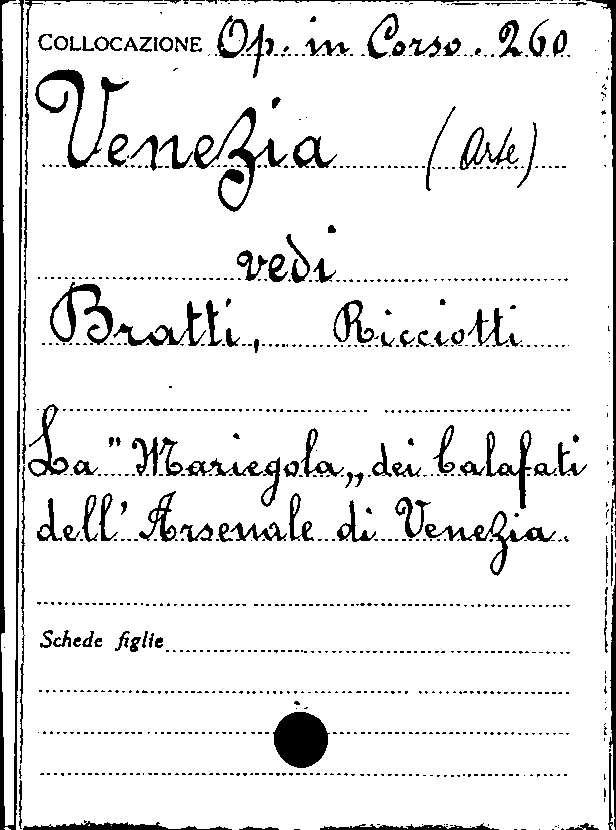 COLLOCAZIONE Op. in Corso. 260
Venezia (Arte)
vedi
Bratti, Ricciotti
La "Mariegola„ dei Calafati
dell' Arsenale di Venezia.
Schede figlie